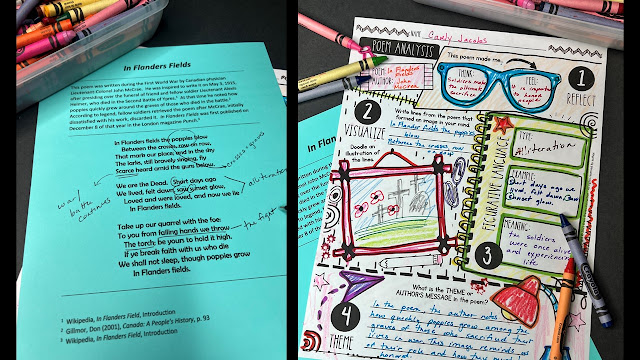 In Flanders Fields
This poem was written during the First World War by Canadian physician
Lieutenant Colonel John McCrae. He was inspired to write it on May 3, 1915,
after presiding over the funeral of friend and fellow soldier Lieutenant Alexis
Helmer, who died in the Second Battle of Ypres.¹ As that time he noted how
poppies quickly grew around the graves of those who died in the battle.²
According to legend, fellow soldiers retrieved the poem after McCrae, initially
dissatisfied with his work, discarded it. In Flanders Fields was first published on
December 8 of that year in the London magazine Punch.³
In Flanders fields the poppies blow
Between the crosses, row on row,
That mark our place; and in the sky
The larks, still bravely singing, fly
Scarce heard amid the guns below.
crosses = graves
We are the Dead. Short days ago
We lived, felt dawn, saw sunset glow,
Loved and were loved, and now we lie
In Flanders fields.
war/
battle
continues
alliteration
Take up our quarrel with the foe:
To you from failing hands we throw
The torch; be yours to hold it high.
If ye break faith with us who die
We shall not sleep, though poppies grow
In Flanders fields.
the fight
1 Wikipedia, In Flanders Field, Introduction
2 Gillmor, Don (2001), Canada: A People's History, p. 93
3 Wikipedia, In Flanders Field, Introduction
NAME Carly Jacobs
POEM ANALYSIS
POEM: In Flanders Fields
AUTHOR: John McCrea
This poem made me...
THINK:
Soldiers make the ultimate sacrifice
FEEL:
It is important to honor people
1
REFLECT
2
VISUALIZE
Write lines from the poem that
formed an image in your mind.
In Flanders fields the poppies
blow
Between the crosses row
Doodle an
illustration of
the lines.
FIGURATIVE LANGUAGE
TYPE:
Alliteration
EXAMPLE:
Short days ago we
lived, felt dawn, saw
sunset glow.
MEANING:
the soldiers
were once alive
and experiencing
life
3
4
THEME
What is the THEME or
AUTHOR'S MESSAGE in the poem?
In the poem the author notes
how quickly poppies grow among the
graves of those who sacrificed their
lives in war. This image reminds us
of their role and